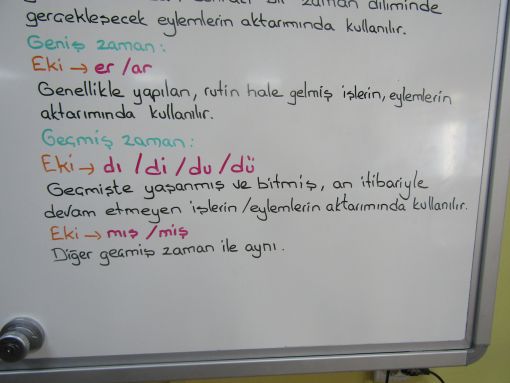 bir zaman diliminde
gerçekleşecek eylemlerin aktarımında kullanılır.
Geniş zaman:
Eki → er /ar
Genellikle yapılan, rutin hale gelmiş işlerin, eylemlerin
aktarımında kullanılır.
Geçmiş zaman:
Eki → dı /di /du /dü
Geçmişte yaşanmış ve bitmiş, an itibariyle
devam etmeyen işlerin /eylemlerin aktarımında kullanılır.
Eki → mış /miş
Diğer geçmiş zaman ile aynı.